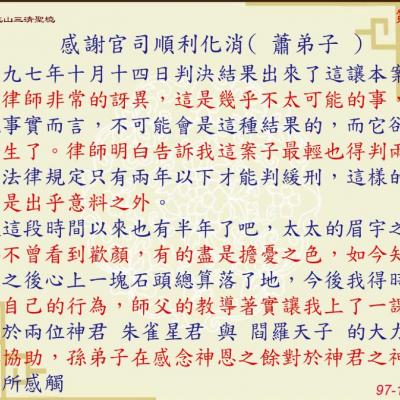 山三清聖境
感謝官司順利化消( 蕭弟子 )
九七年十月十四日判決結果出來了這讓本案
律師非常的訝異，這是幾乎不太可能的事，
事實而言，不可能會是這種結果的，而它卻
生了。律師明白告訴我這案子最輕也得判兩
法律規定只有兩年以下才能判緩刑，這樣的
是出乎意料之外。
這段時間以來也有半年了吧，太太的眉宇之
不曾看到歡顏，有的盡是擔憂之色，如今知
之後心上一塊石頭總算落了地，今後我得時
自己的行為，師父的教導著實讓我上了一課
於兩位神君 朱雀星君 與 閻羅天子 的大力
協助，孫弟子在感念神恩之餘對於神君之神
所感觸
97-1